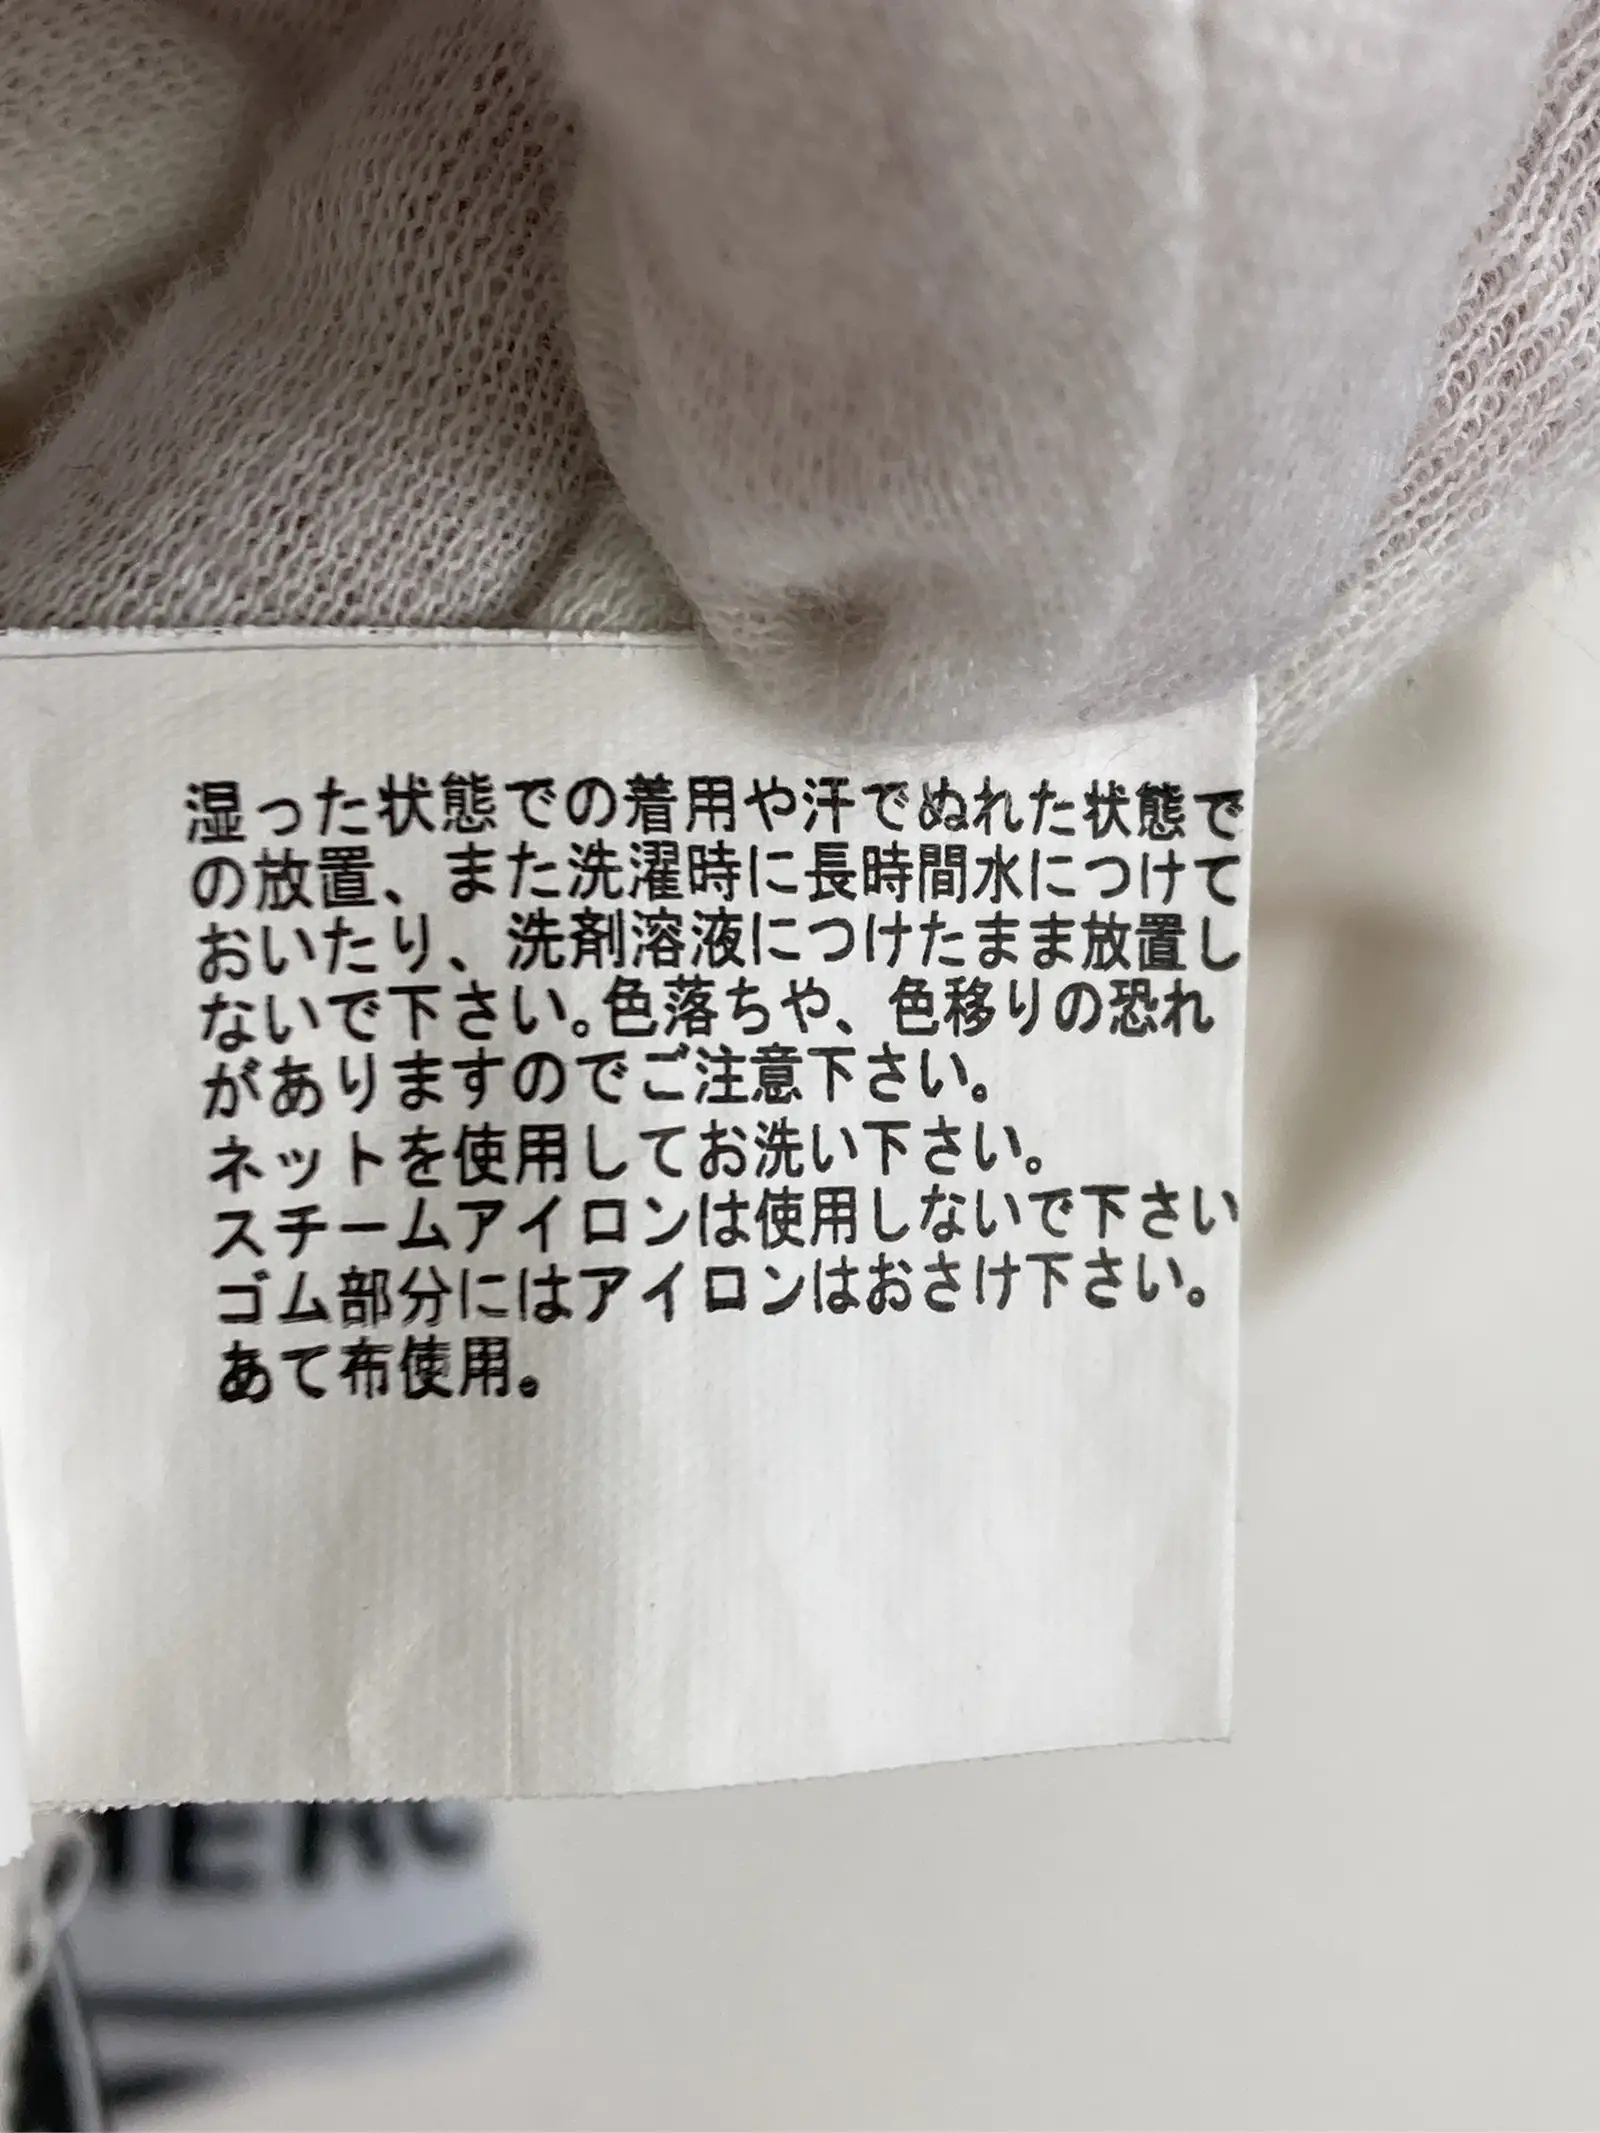 湿った状態での着用や汗でぬれた状態で
の放置、また洗濯時に長時間水につけて
おいたり、洗剤溶液につけたまま放置し
ないで下さい。色落ちや、色移りの恐れ
がありますのでご注意下さい。
ネットを使用してお洗い下さい。
スチームアイロンは使用しないで下さい
ゴム部分にはアイロンはおさけ下さい。
あて布使用。